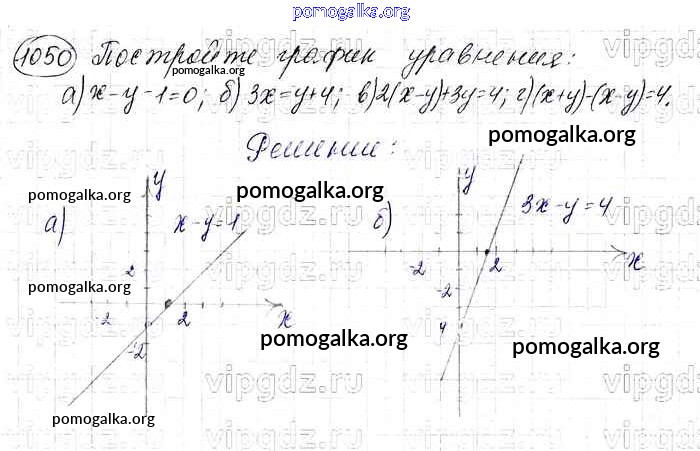 pomogalka.org
1050 Постройте график уравнения:
pomogalka.org
а) x-y-1=0; б) 3x=y+4; в) 2(x-y)+3y=4; г) (x+y)-(x-y)=4.
Решение:
pomogalka.org
pomogalka.org pomogalka.org
y y
а) x-y=1 б) 3x-y=4
2 -2 2 x
pomogalka.org -2
-2 2 x
pomogalka.org 4 pomogalka.org
-2
vipgdz.ru vipgdz.ru
pomogalka.org